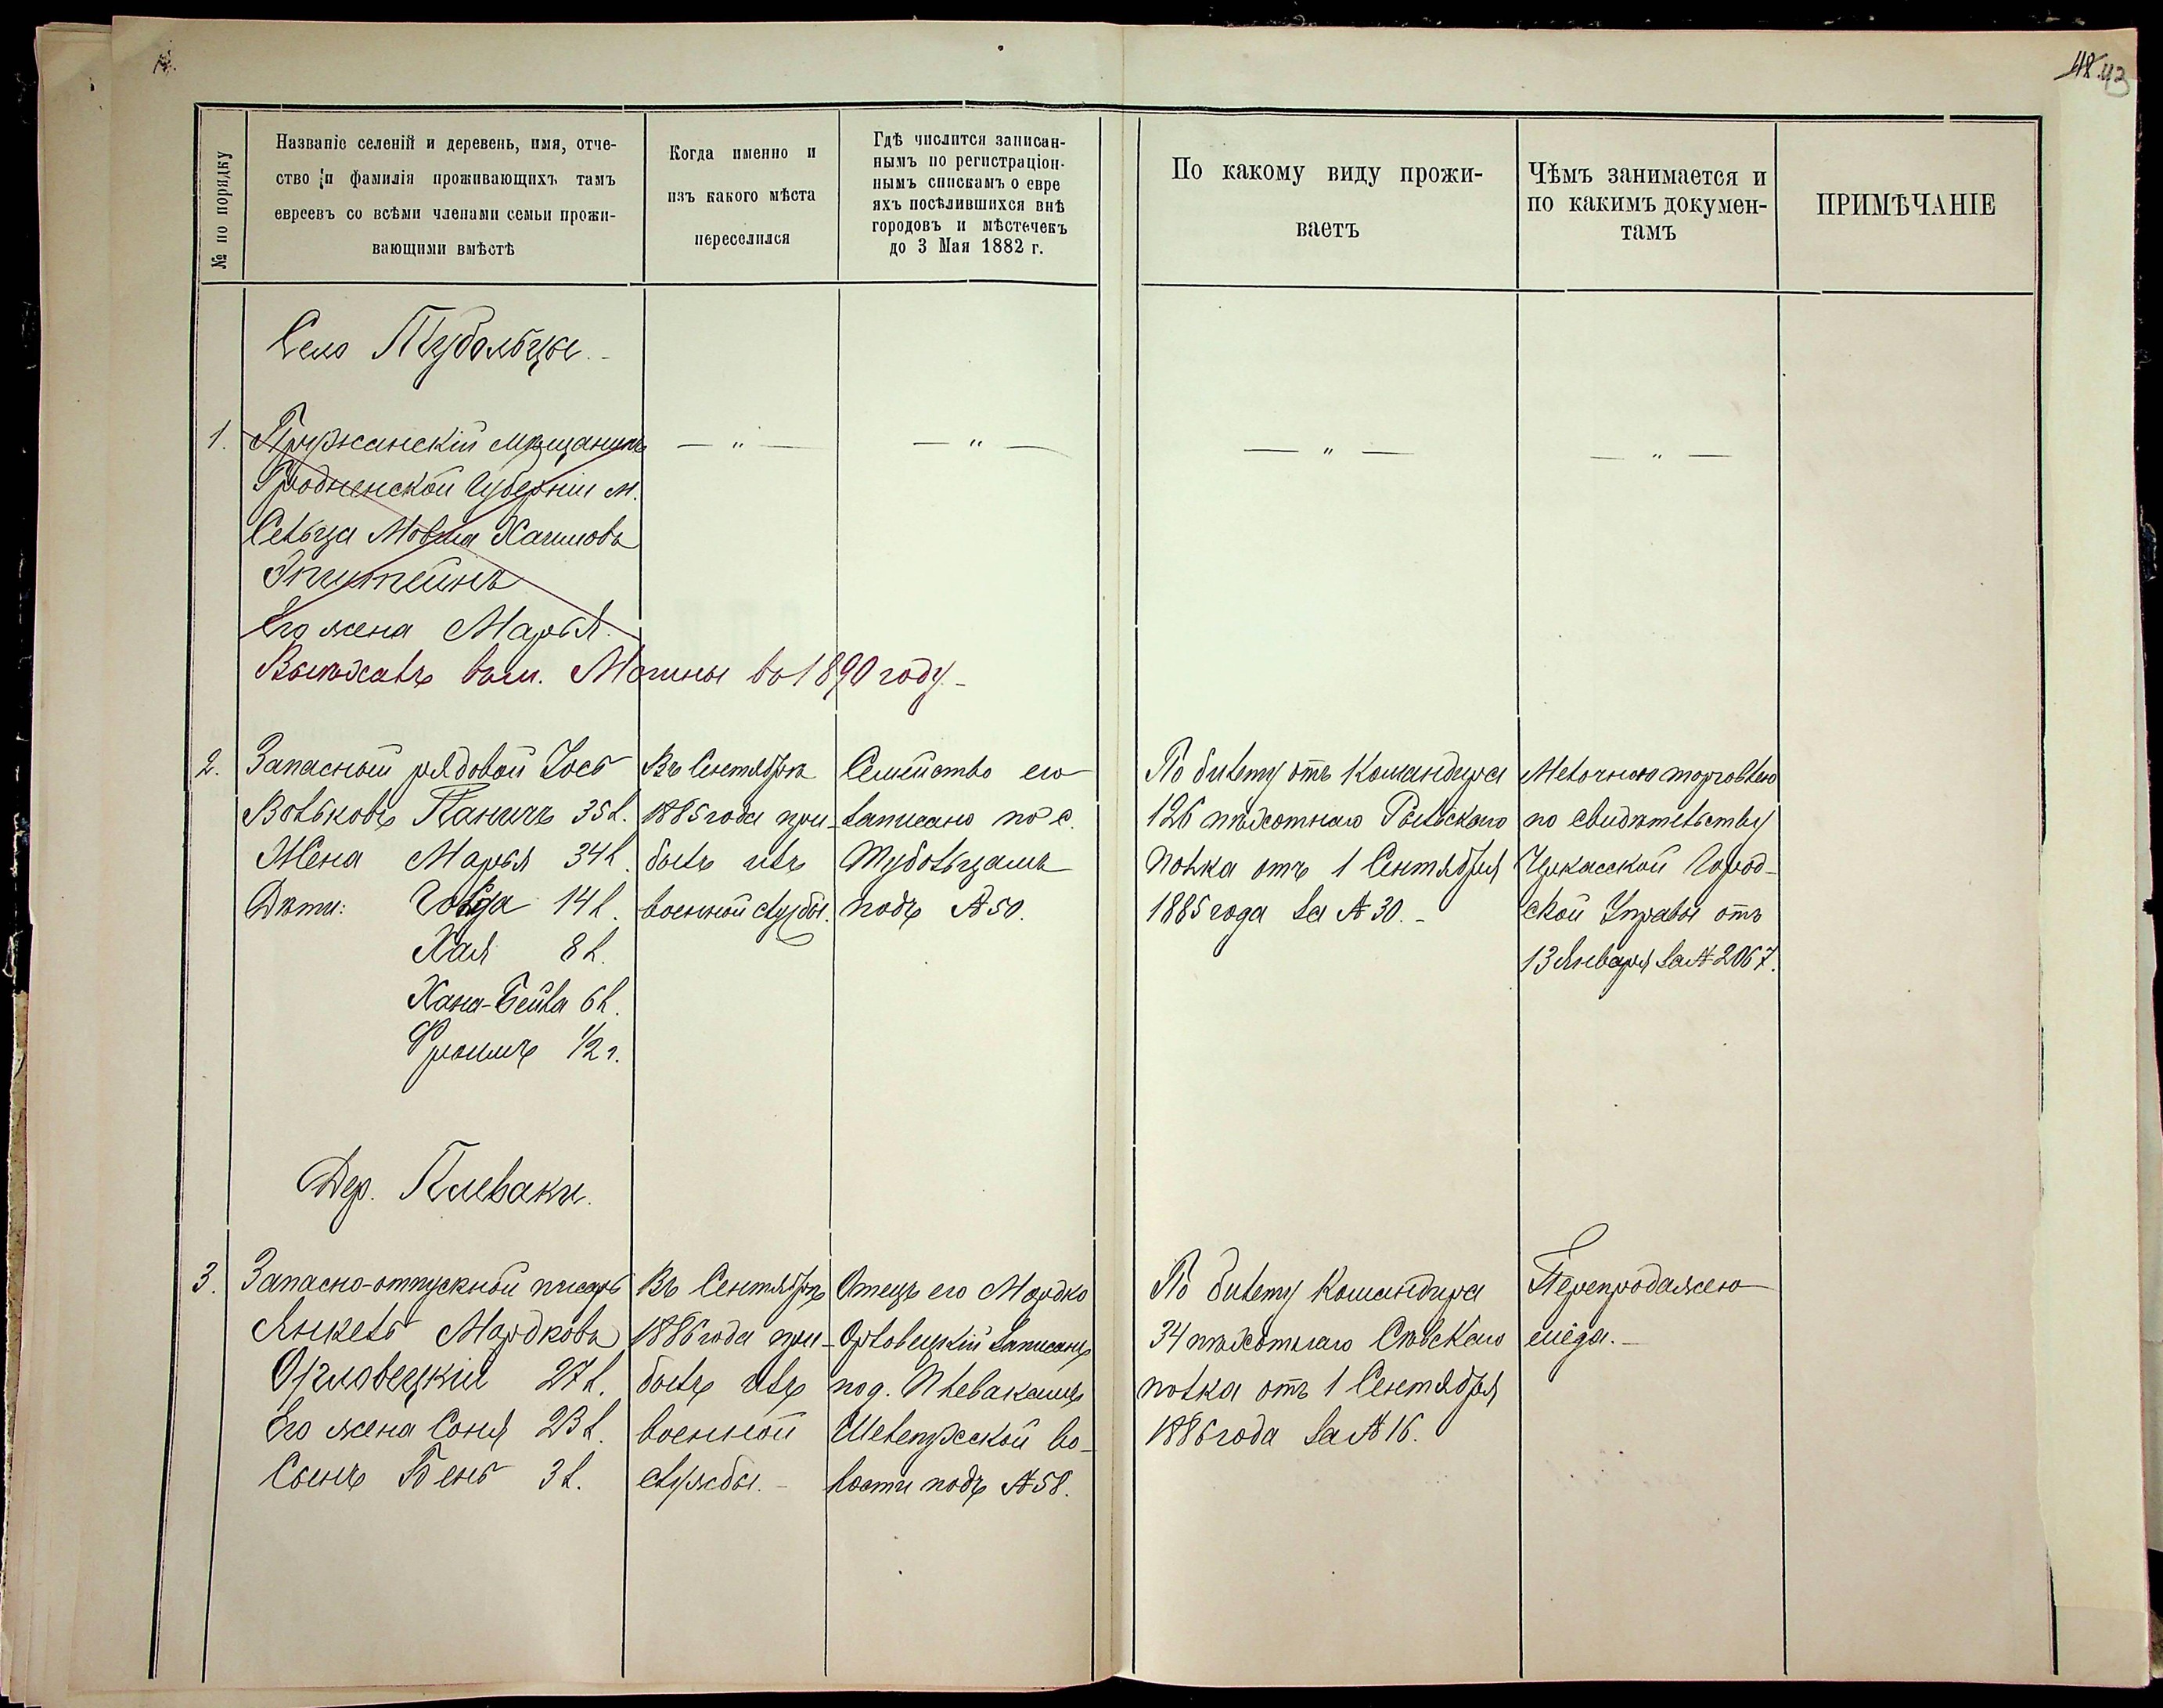 48. 43
№ по порядку
Названіе селеній и деревень, имя, отче-
ство и фамилія проживающихъ тамъ
евреевъ со всѣми членами семьи прожи-
вающими вмѣстѣ
Когда именно и
изъ какого мѣста
переселился
Гдѣ числится записан-
нымъ по регистраціон-
нымъ спискамъ о евре
яхъ поселившихся внѣ
городовъ и мѣстечекъ
до 3 Мая 1882 г.
По какому виду прожи-
ваетъ
Чѣмъ занимается и
по какимъ докумен-
тамъ
ПРИМѢЧАНІЕ
Село Тубольцы.-
1. Пружанскій мѣщанинъ
Гродненской губерніи м.
Сельца Мовша Хаимовъ
Эпштейнъ
Его жена Марья.
— " —
— " —
— " —
— " —
Выѣхалъ въ м. Мошны въ 1890 году.-
2. Запасный рядовой Іось
Вольковъ Паничъ 35 л.
Жена Марья 34 л.
Дѣти: Голда 14 л.
Хая 8 л.
Хана-Бейла 6 л.
Фроимъ 1/2 г.
Въ Сентябрѣ
1885 года при-
былъ изъ
военной службы.
Семейство его
записано по с.
Тубольцамъ
подъ № 50.
По билету отъ Командира
126 пѣхотнаго Рыльскаго
полка отъ 1 Сентября
1885 года за № 30.-
Мелочною торговлею
по свидѣтельству
Черкасской Город-
ской Управы отъ
13 Января за № 2067.
Дер. Плеваки.
3. Запасно-отпускной писарь
Янкель Мордковъ
Орловецкій 27 л.
Его жена Соня 23 л.
Сынъ Бень 3 л.
Въ Сентябрѣ
1886 года при-
былъ изъ
военной
службы.-
Отецъ его Мордко
Орловецкій записанъ
по д. Плевакамъ
Шелепухской во-
лости подъ № 58.
По билету Командира
34 пѣхотнаго Сѣвскаго
полка отъ 1 Сентября
1886 года за № 16.
Перепродажею
мёда.-